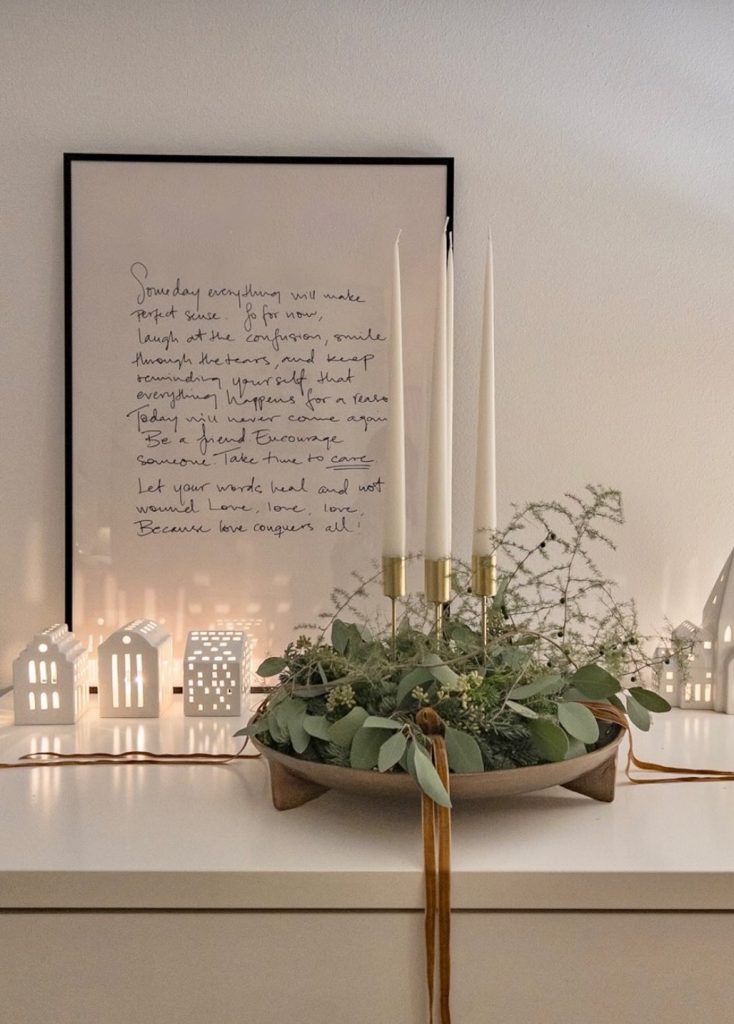 Someday everything will make
perfect sense. So for now,
laugh at the confusion, smile
through the tears, and keep
reminding yourself that
everything happens for a reaso
Today will never come again
Be a friend Encourage
someone. Take time to care.
Let your words heal and not
wound Love, love, love,
Because love conquers all!